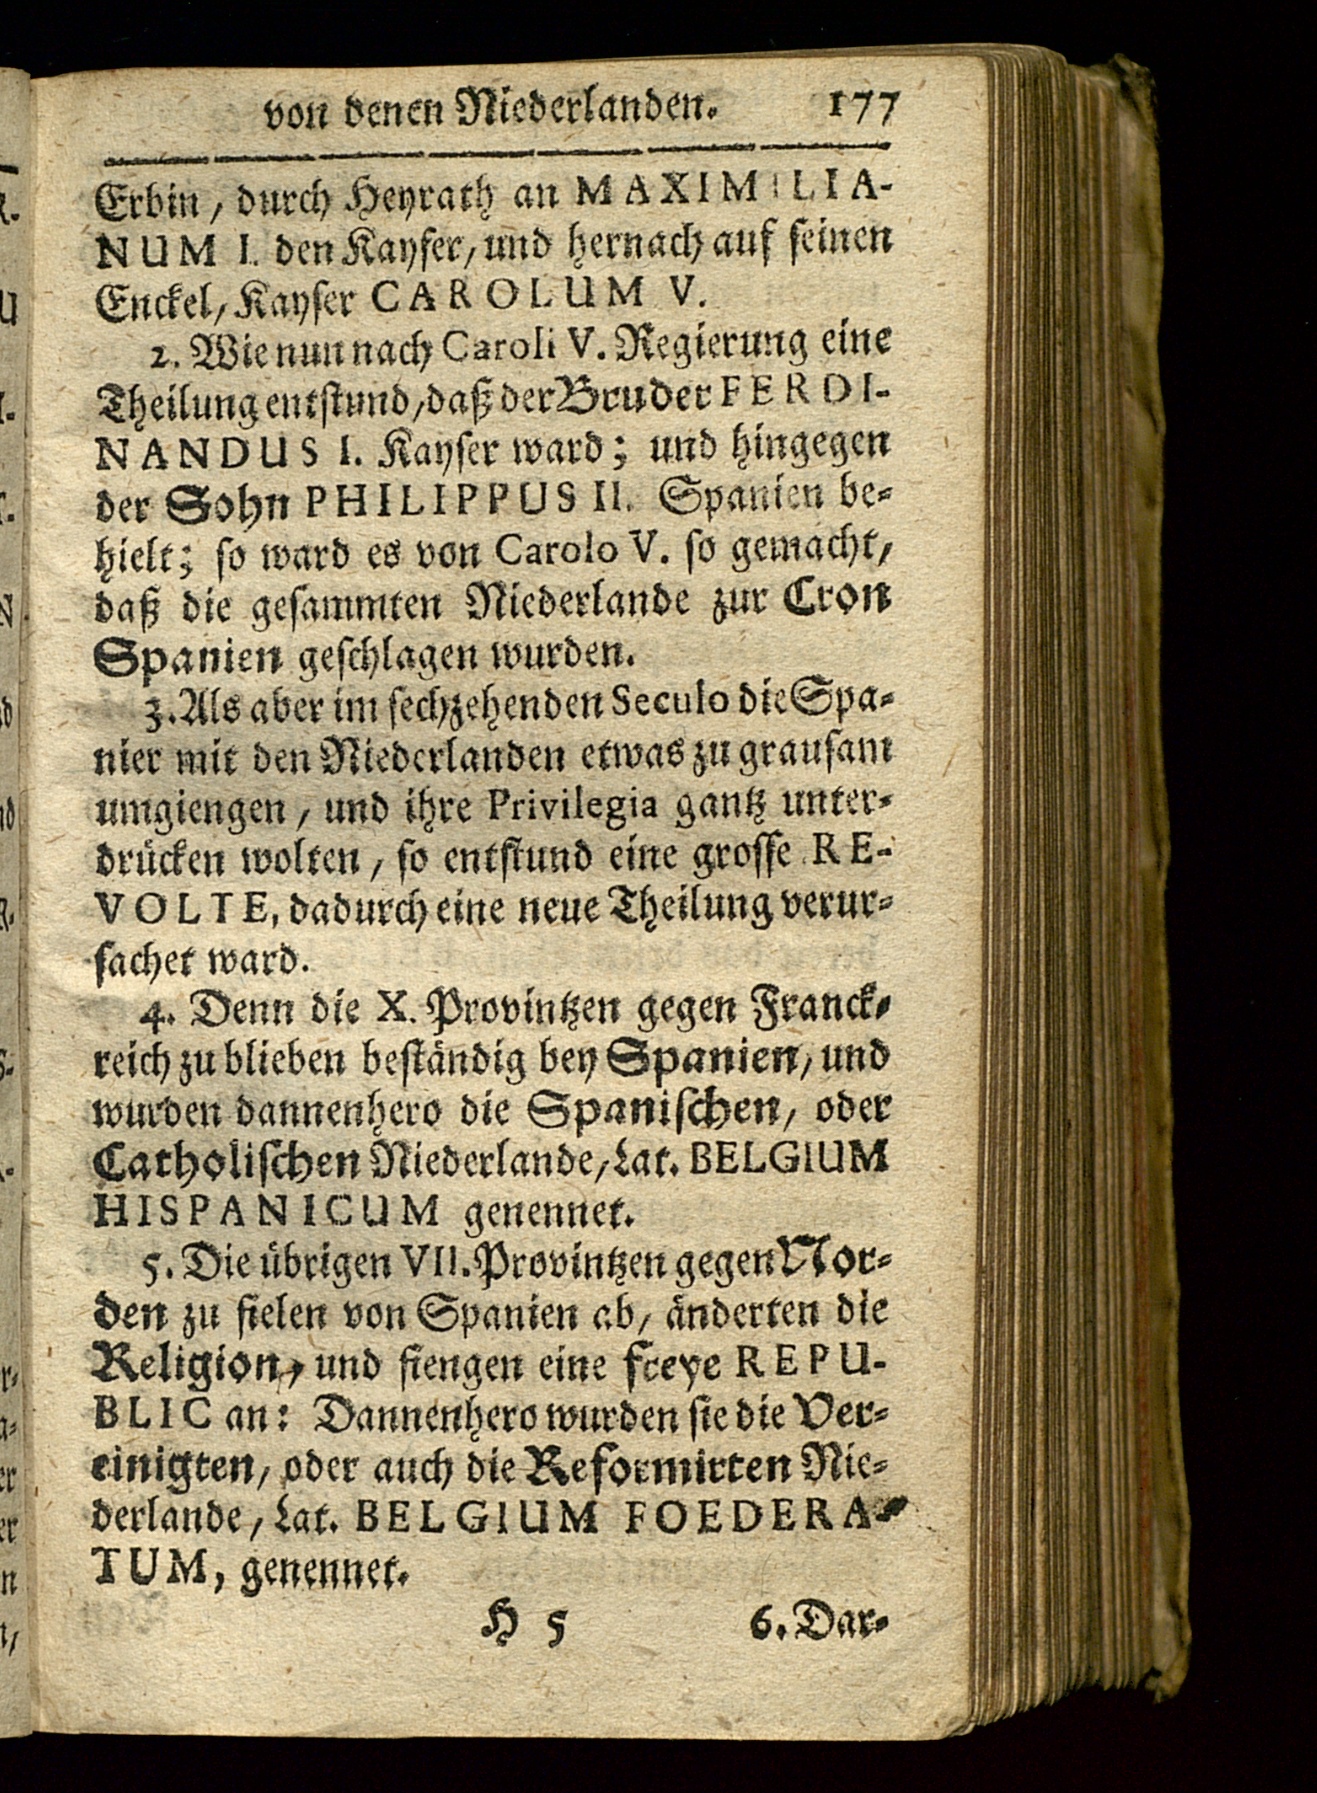 von denen Niederlanden. 177
Erbin, durch Heyrath an MAXIMILIA-
NUM I. den Kayser, und hernach auf seinen
Enckel, Kayser CAROLUM V.
2. Wie nun nach Caroli V. Regierung eine
Theilung entstund, daß der Bruder FERDI-
NANDUS I. Kayser ward; und hingegen
der Sohn PHILIPPUS II. Spanien be-
hielt; so ward es von Carolo V. so gemacht,
daß die gesammten Niederlande zur Cron
Spanien geschlagen wurden.
3. Als aber im sechzehenden Seculo die Spa-
nier mit den Niederlanden etwas zu grausam
umgiengen, und ihre Privilegia gantz unter-
drücken wolten, so entstund eine grosse RE-
VOLTE, dadurch eine neue Theilung verur-
sachet ward.
4. Denn die X. Provintzen gegen Franck-
reich zu blieben beständig bey Spanien, und
wurden dannenhero die Spanischen, oder
Catholischen Niederlande, Lat. BELGIUM
HISPANICUM genennet.
5. Die übrigen VII. Provintzen gegen Nor-
den zu fielen von Spanien ab, änderten die
Religion, und fiengen eine freye REPU-
BLIC an: Dannenhero wurden sie die Ver-
einigten, oder auch die Reformirten Nie-
derlande, Lat. BELGIUM FOEDERA-
TUM, genennet.
H 5 6. Dar-